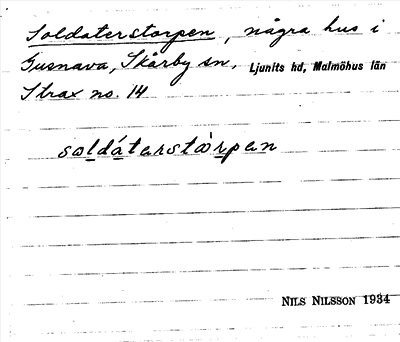 Soldaterstorpen, några hus i
Gusnava, Skårby sn. Ljunits hd, Malmöhus län
Strax no. 14
soldáterstòrpen
NILS NILSSON 1934